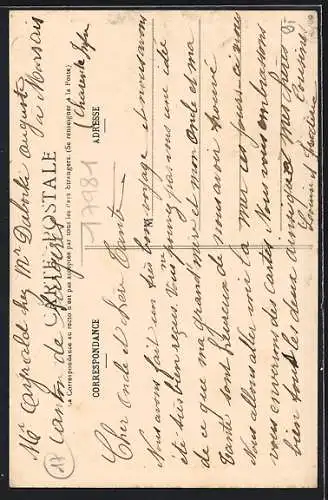 Mr Caspolde chez Mr Dubreuil auguste
à Marsais
CARTE POSTALE
La Correspondance au recto n'est pas acceptée par tous les Pays étrangers. (Se renseigner à la Poste)
Canton de
Charente Infre
CORRESPONDANCE
ADRESSE
17981
17
Cher Oncle et
Tante
Nous avons fait un très bon voyage et nous avons
été très bien reçus. Vous ne pouvez pas vous une idé
de ce que ma grand mère et mon Oncle et ma
Tante sont heureux de nous avoir trouvé
Nous allons aller voir la mer ces jours ci nous
vous enverrons des cartes. Nous vous embrassons
bien tous les deux ainsi que mes frères et
Cousins